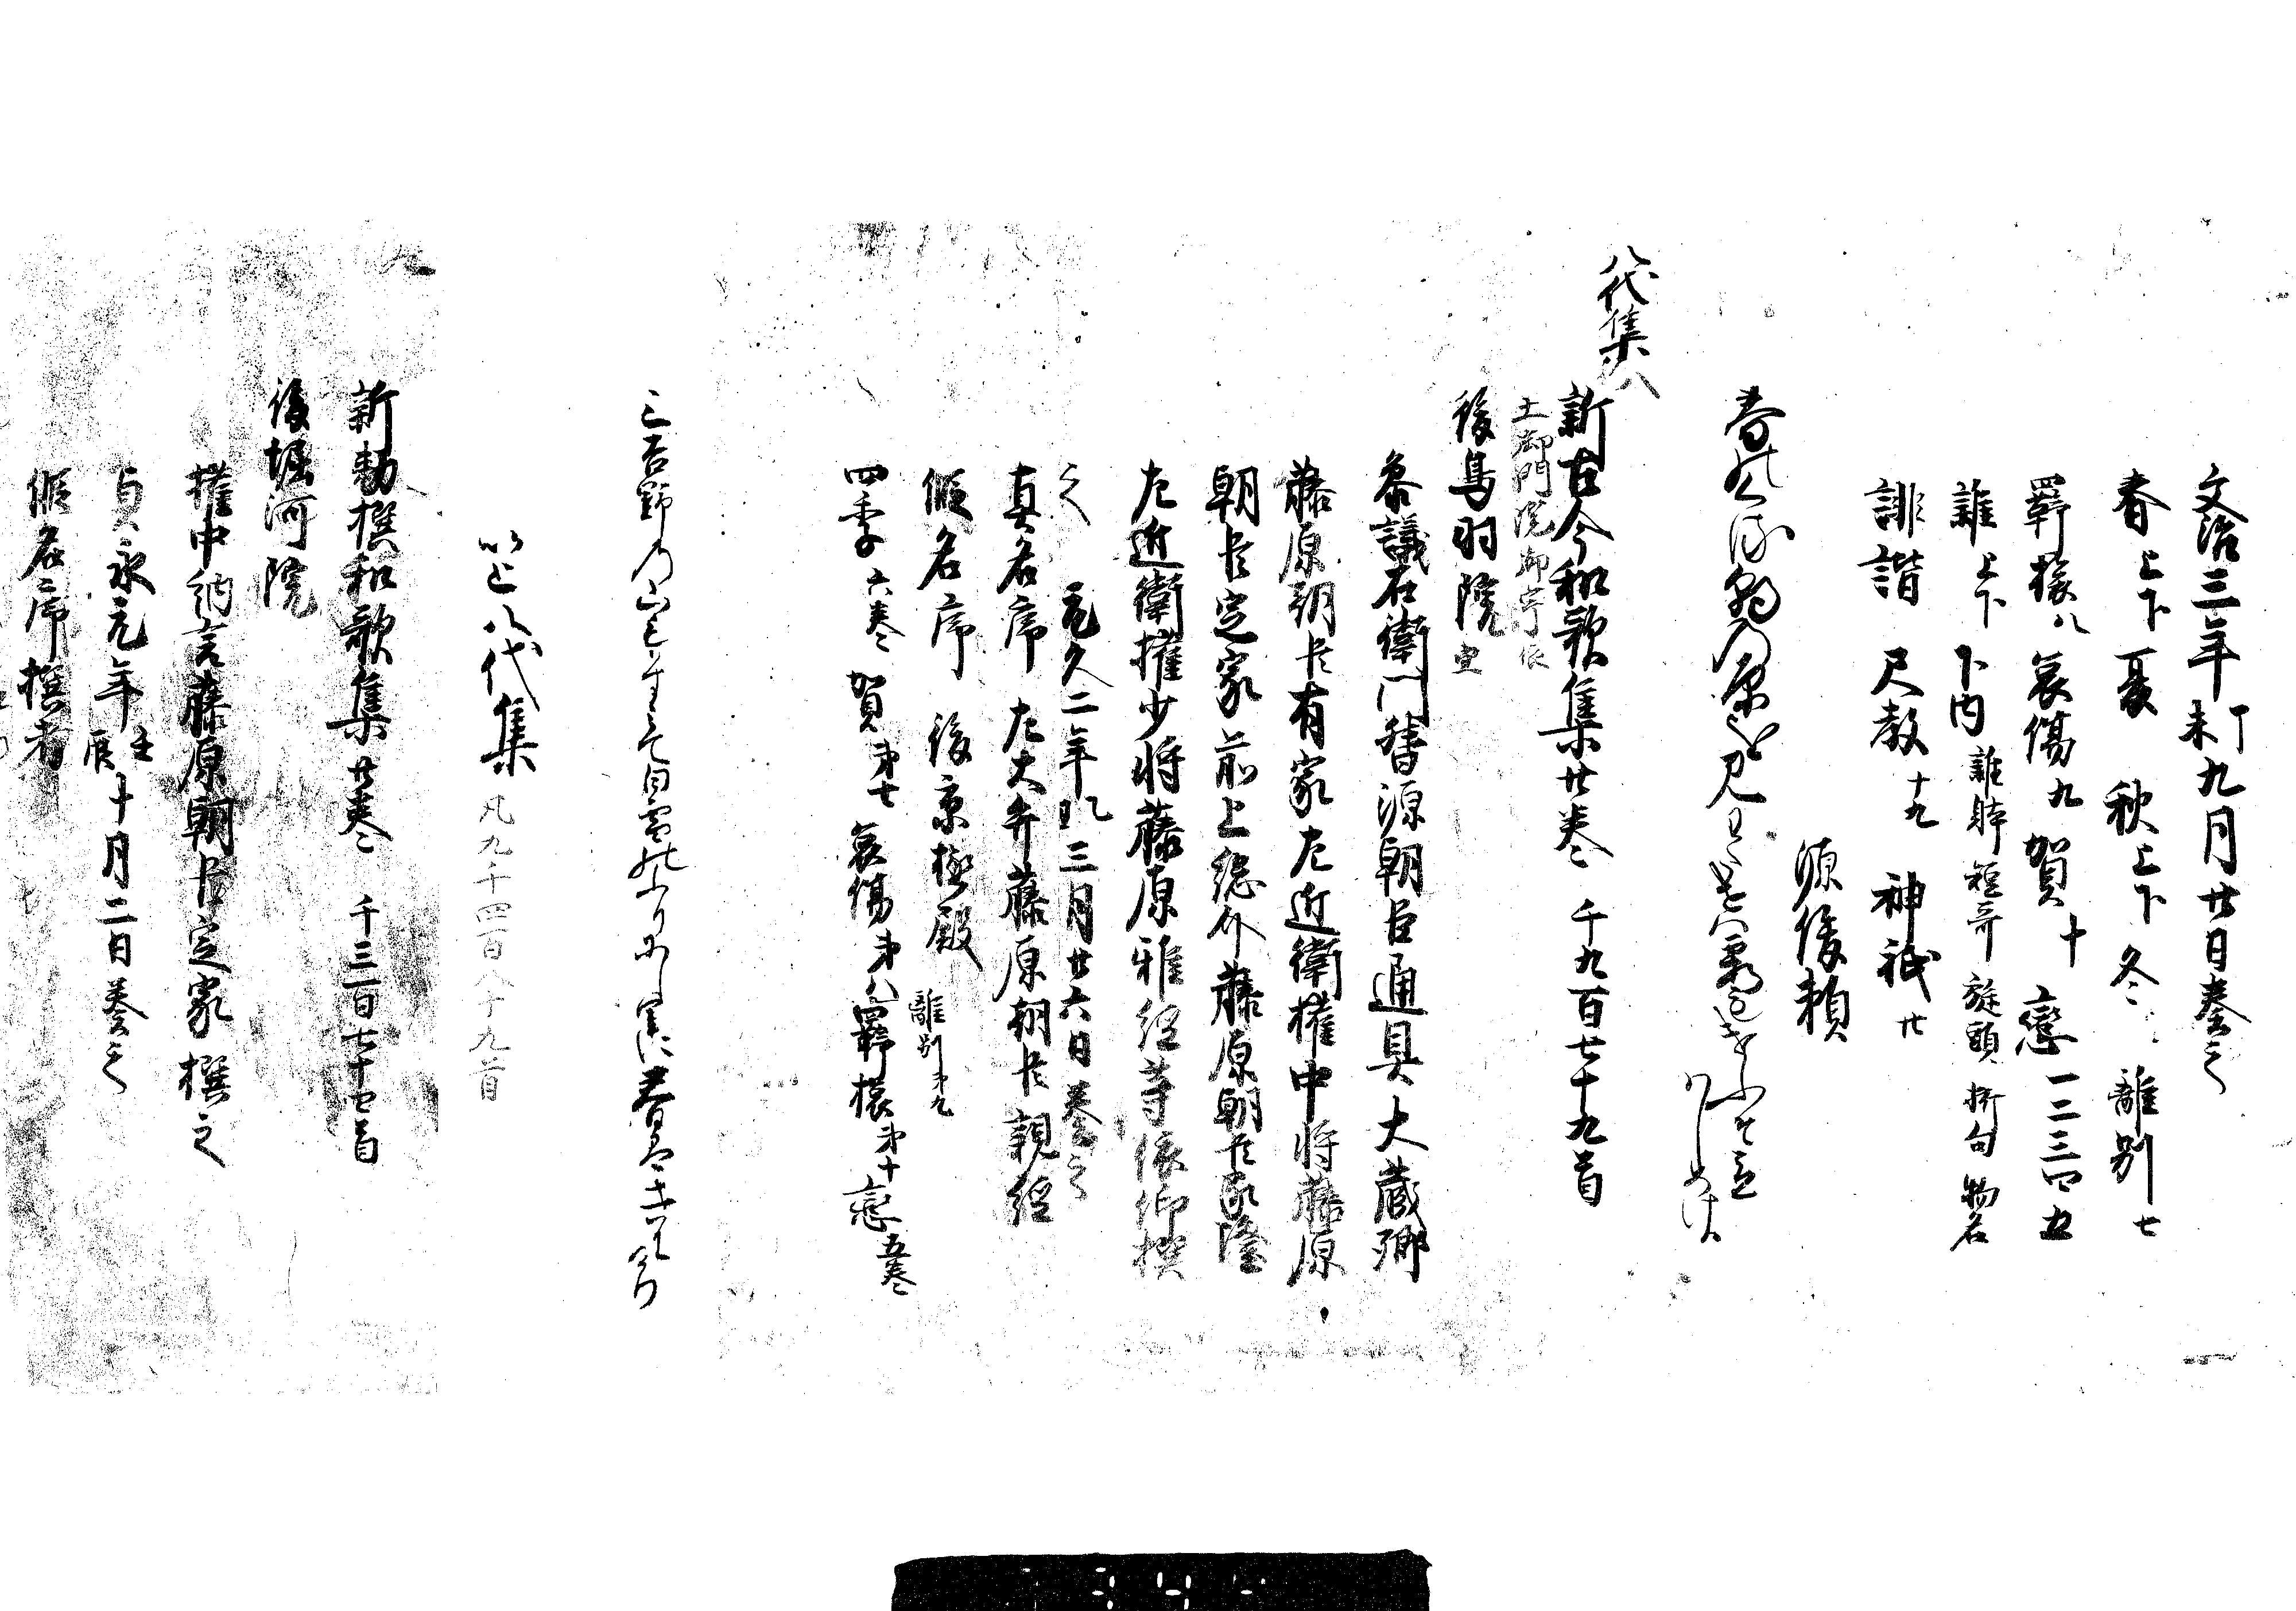 文治三年丁未九月廿日奏之
春上下 夏 秋上下 冬 離別七
羇旅八 哀傷九 賀十 戀一二三四五
雜上下 下内雜躰 短哥 旋頭 折句 物名
誹諧 尺教十九 神祇廿
源俊頼
八代集八
新古今和歌集廿巻 千九百七十九首
土御門院御宇
後鳥羽院
参議右衛門督源朝臣通具大蔵卿
藤原朝臣有家左近衛権中将藤原
朝臣定家前上総介藤原朝臣家隆
左近衛権少将藤原雅経等依仰撰
之 元久二年三月廿六日奏之
真名序 左大弁藤原朝臣親経
假名序 後京極殿
離別第九
四季六巻 賀第七 哀傷第八 羇旅第十 恋五巻
以上八代集 凡九千四百八十九首
新勅撰和歌集廿巻 千三百七十四首
後堀河院
権中納言藤原朝臣定家撰之
貞永元年壬辰十月二日奏之
假名序撰者